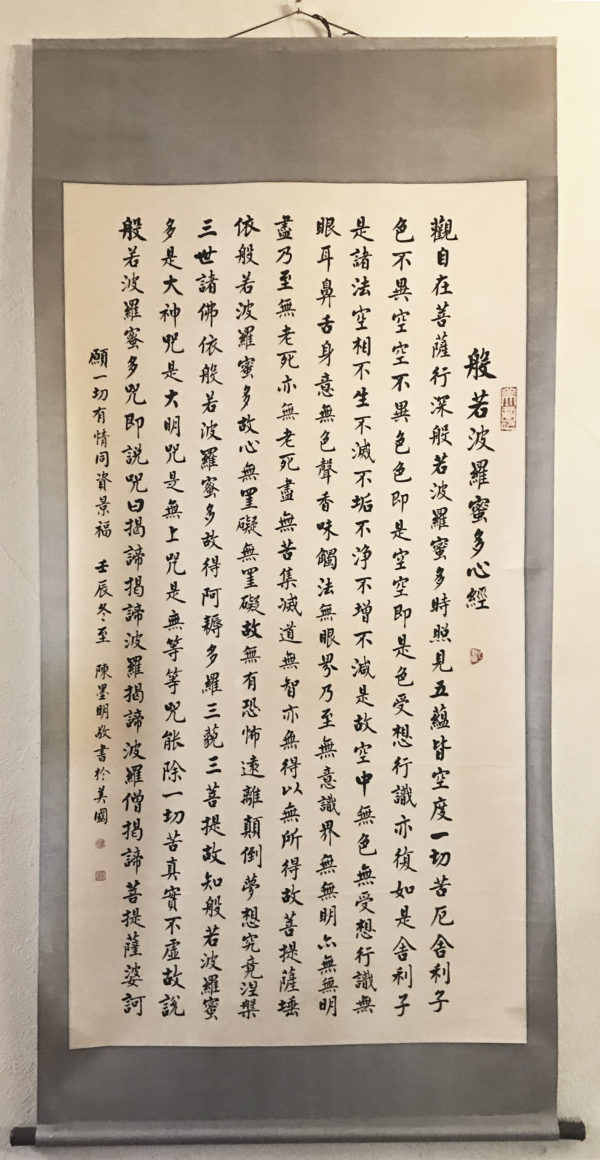 般若波羅蜜多心經
觀自在菩薩行深般若波羅蜜多時照見五蘊皆空度一切苦厄舍利子
色不異空空不異色色即是空空即是色受想行識亦復如是舍利子
是諸法空相不生不滅不垢不淨不增不減是故空中無色無受想行識無
眼耳鼻舌身意無色聲香味觸法無眼界乃至無意識界無無明亦無無明
盡乃至無老死亦無老死盡無苦集滅道無智亦無得以無所得故菩提薩埵
依般若波羅蜜多故心無罣礙無罣礙故無有恐怖遠離顛倒夢想究竟涅槃
三世諸佛依般若波羅蜜多故得阿耨多羅三藐三菩提故知般若波羅蜜
多是大神咒是大明咒是無上咒是無等等咒能除一切苦真實不虛故說
般若波羅蜜多咒即說咒曰揭諦揭諦波羅揭諦波羅僧揭諦菩提薩婆訶
願一切有情同資景福 壬辰冬至 陳墨明敬書於美國